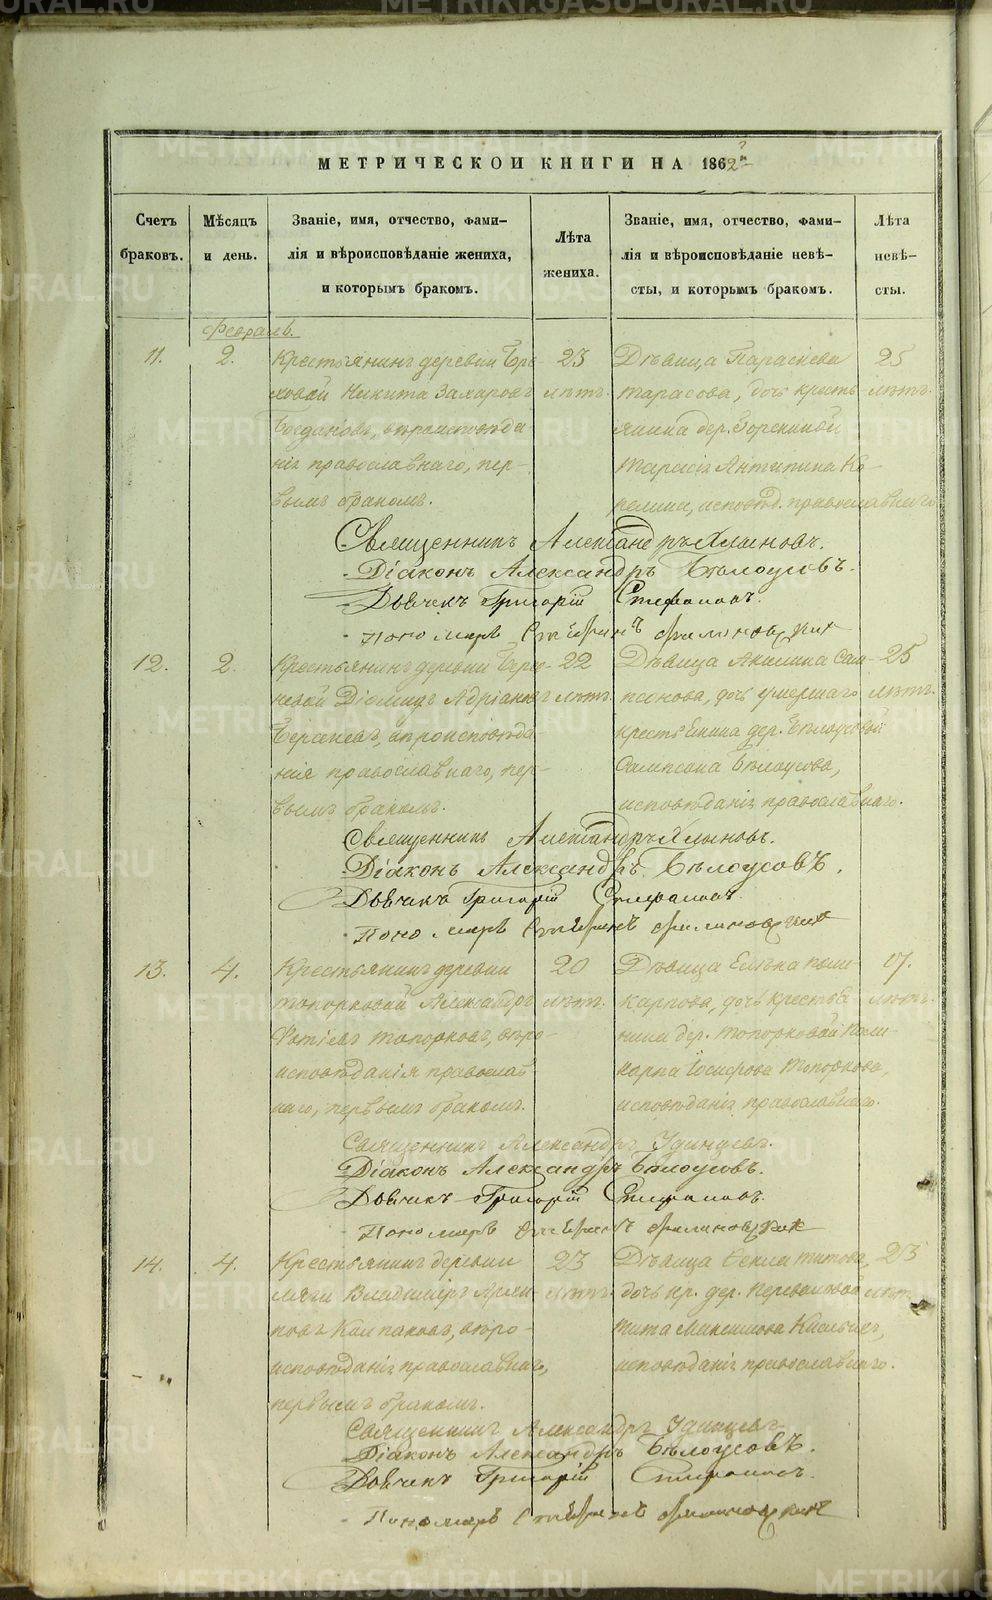 МЕТРИЧЕСКОЙ КНИГИ НА 1862 й
Счетъ браковъ.
Мѣсяцъ и день.
Званіе, имя, отчество, фами-
лія и вѣроисповѣданіе жениха,
и которымъ бракомъ.
Лѣта
жениха.
Званіе, имя, отчество, фами-
лія и вѣроисповѣданіе невѣ-
сты, и которымъ бракомъ.
Лѣта
невѣ-
сты.
Февраль.
11. 2.
Крестьянинъ деревни
Никита Захаровъ
Богдановъ, вѣроисповѣда-
нія православнаго, пер-
вымъ бракомъ.
23
лѣтъ.
Дѣвица Параскева
Тарасова, дочь кресть-
янина дер.
Тарасія Антипина Ко-
релина, исповѣд. православнаго
25
лѣтъ.
Священникъ Александръ Хлыновъ.
Діаконъ Александръ Бѣлоусовъ.
Дьячекъ Григорій Стефановъ.
Пономарь
12. 2.
Крестьянинъ деревни
Діомидъ Адріановъ
вѣроисповѣда-
нія православнаго, пер-
вымъ бракомъ.
22
лѣтъ
Дѣвица Акилина Сам-
псонова, дочь умершаго
крестьянина дер. Бѣлоусовой
Сампсона Бѣлоусова,
исповѣданія православнаго.
25
лѣтъ.
Священникъ Александръ Хлыновъ.
Діаконъ Александръ Бѣлоусовъ.
Дьячекъ Григорій Стефановъ.
Пономарь
13. 4.
Крестьянинъ деревни
Топорковой Александръ
Фотіевъ Топорковъ, вѣро-
исповѣданія православ-
наго, первымъ бракомъ.
20
лѣтъ.
Дѣвица Елена Поли-
карпова, дочь крестья-
нина дер. Топорковой Поли-
карпа Іосифова Топоркова,
исповѣданія православнаго.
17.
лѣтъ.
Священникъ Александръ Удинцевъ.
Діаконъ Александръ Бѣлоусовъ.
Дьячекъ Григорій Стефановъ.
Пономарь
14. 4.
Крестьянинъ деревни
Владиміръ
Колпаковъ, вѣро-
исповѣданія православнаго,
первымъ бракомъ.
23
лѣтъ.
Дѣвица Текла Титова,
дочь кр. дер.
Тита Максимова
исповѣданія православнаго.
23
лѣтъ
Священникъ Александръ Удинцевъ
Діаконъ Александръ Бѣлоусовъ.
Дьячекъ Григорій Стефановъ.
Пономарь
METRIKI.GASO-URAL.RU